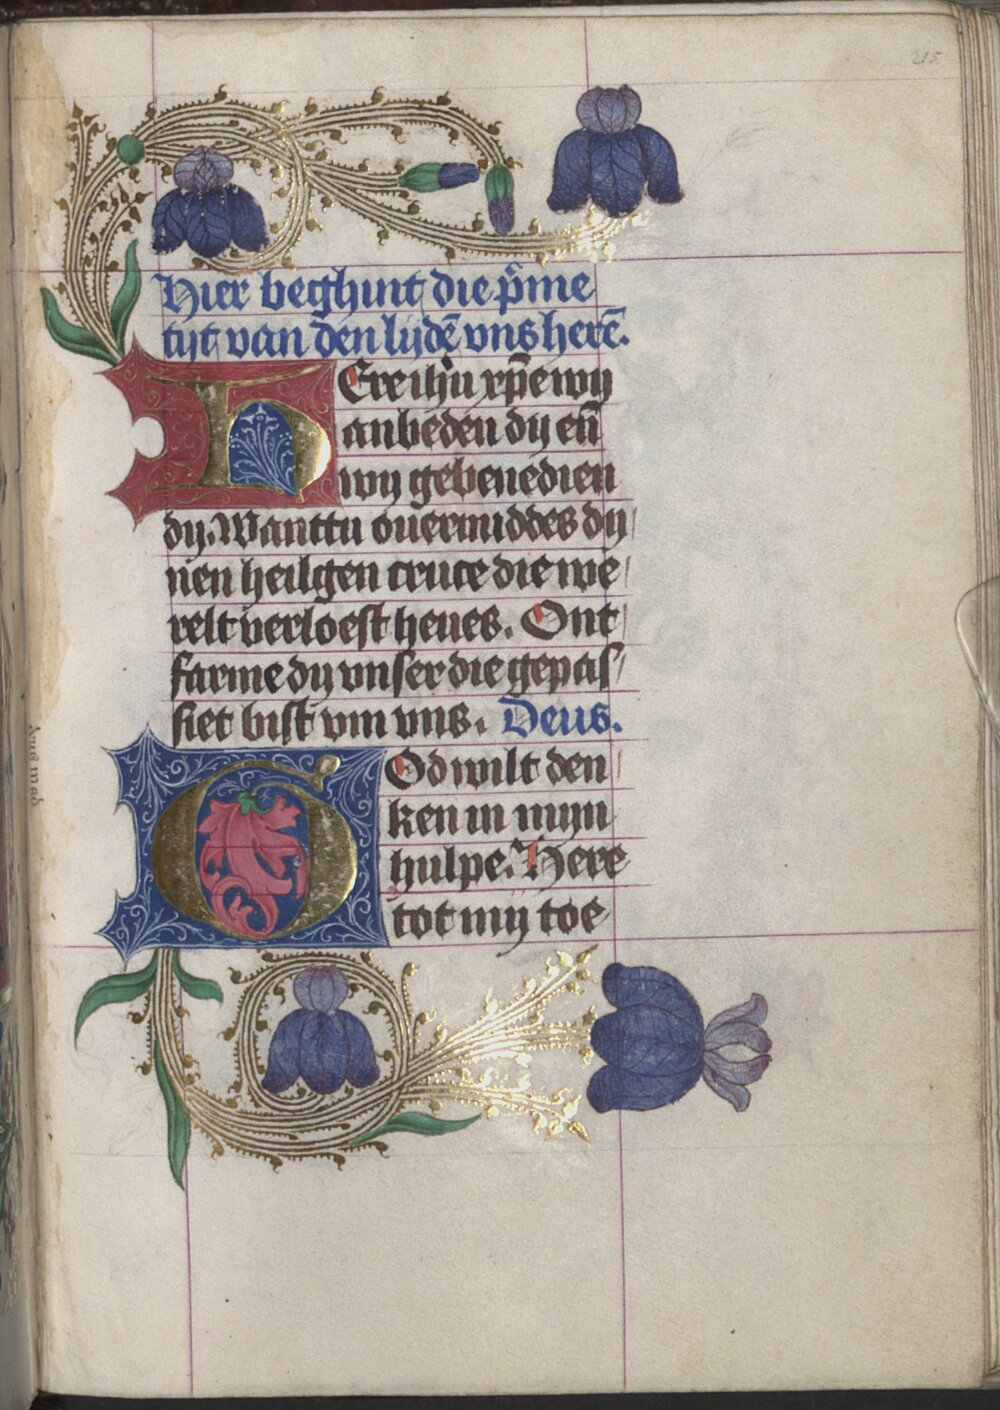 215
Hier beghint die p̄me
tijt van den lijdē vns herē.
HEre ihū xpē wy
anbeden dy eñ
wy gebenedien
dy. Wanttu ouermiddes dy
nen heilgen cruce die we
relt verloest heues. Ont
farme dy vnser die gepas
siet bist vm vns. Deus.
GOd wilt den
ken in mijn
hulpe. Here
tot mij toe